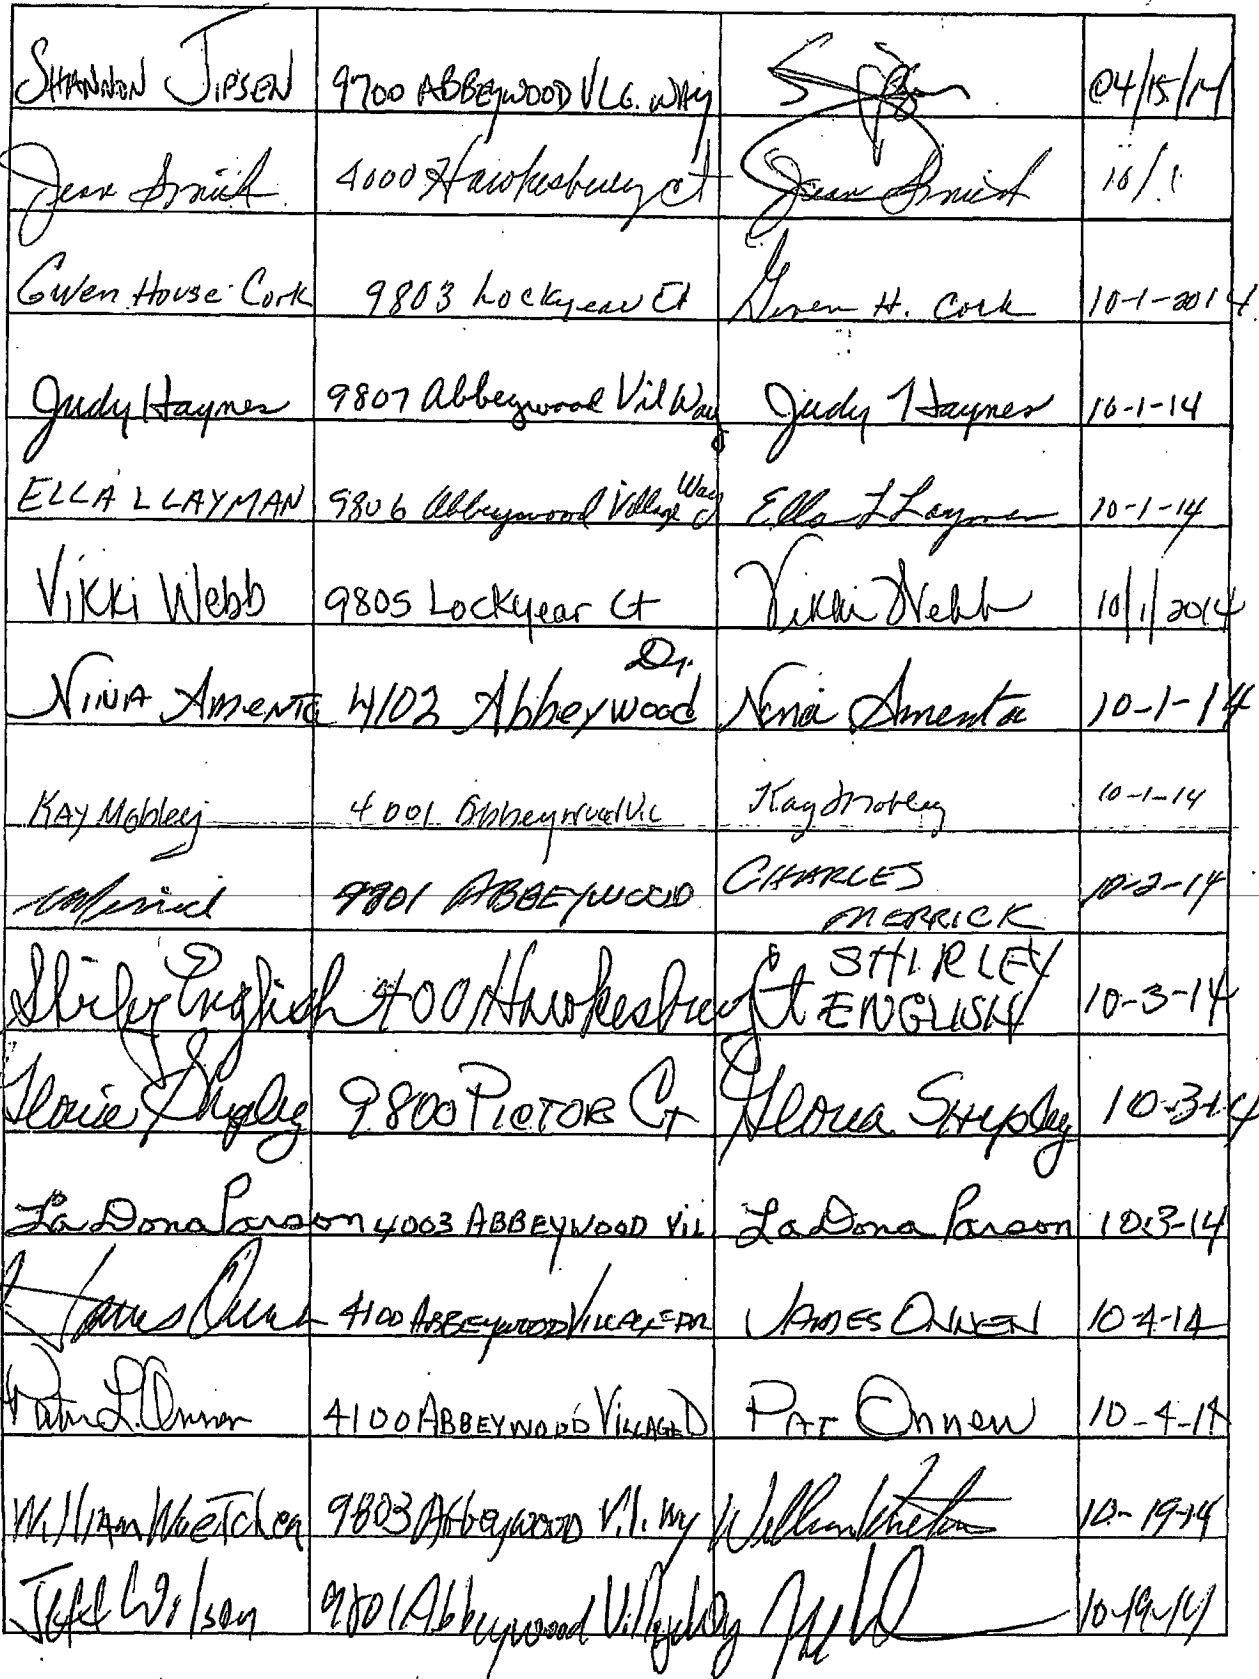 SHANNON JIPSEN 9700 ABBEYWOOD VLG. WAY 04/15/14
Jean Smith 4000 Hawkesbury Ct Jean Smith 10/1
Gwen House-Cork 9803 Lockyear Ct Gwen H. Cork 10-1-2014
Judy Haynes 9807 Abbeywood Vil Way Judy Haynes 10-1-14
ELLA L LAYMAN 9806 Abbeywood Village Way Ella L Layman 10-1-14
Vikki Webb 9805 Lockyear Ct Vikki Webb 10/1/2014
NINA Amenta 4102 Abbeywood Dr. Nina Amenta 10-1-14
KAY Mobley 4001 Abbeywood Vil Kay Mobley 10-1-14
9801 ABBEYWOOD CHARLES MERRICK 10-2-14
Shirley English 4001 Hawkesbury Ct SHIRLEY ENGLISH 10-3-14
Gloria Shipley 9800 PICTOR Ct Gloria Shipley 10-3-14
LaDona Parson 4003 ABBEYWOOD Vil LaDona Parson 10-3-14
James Onnen 4100 ABBEYWOOD VILLAGE DR JAMES ONNEN 10-4-14
4100 ABBEYWOOD VILLAGE D PAT Onnen 10-4-14
William 9803 Abbeywood Vil. Wy William 10-19-14
Jeff Wilson 9801 Abbeywood Village Wy 10-19-14